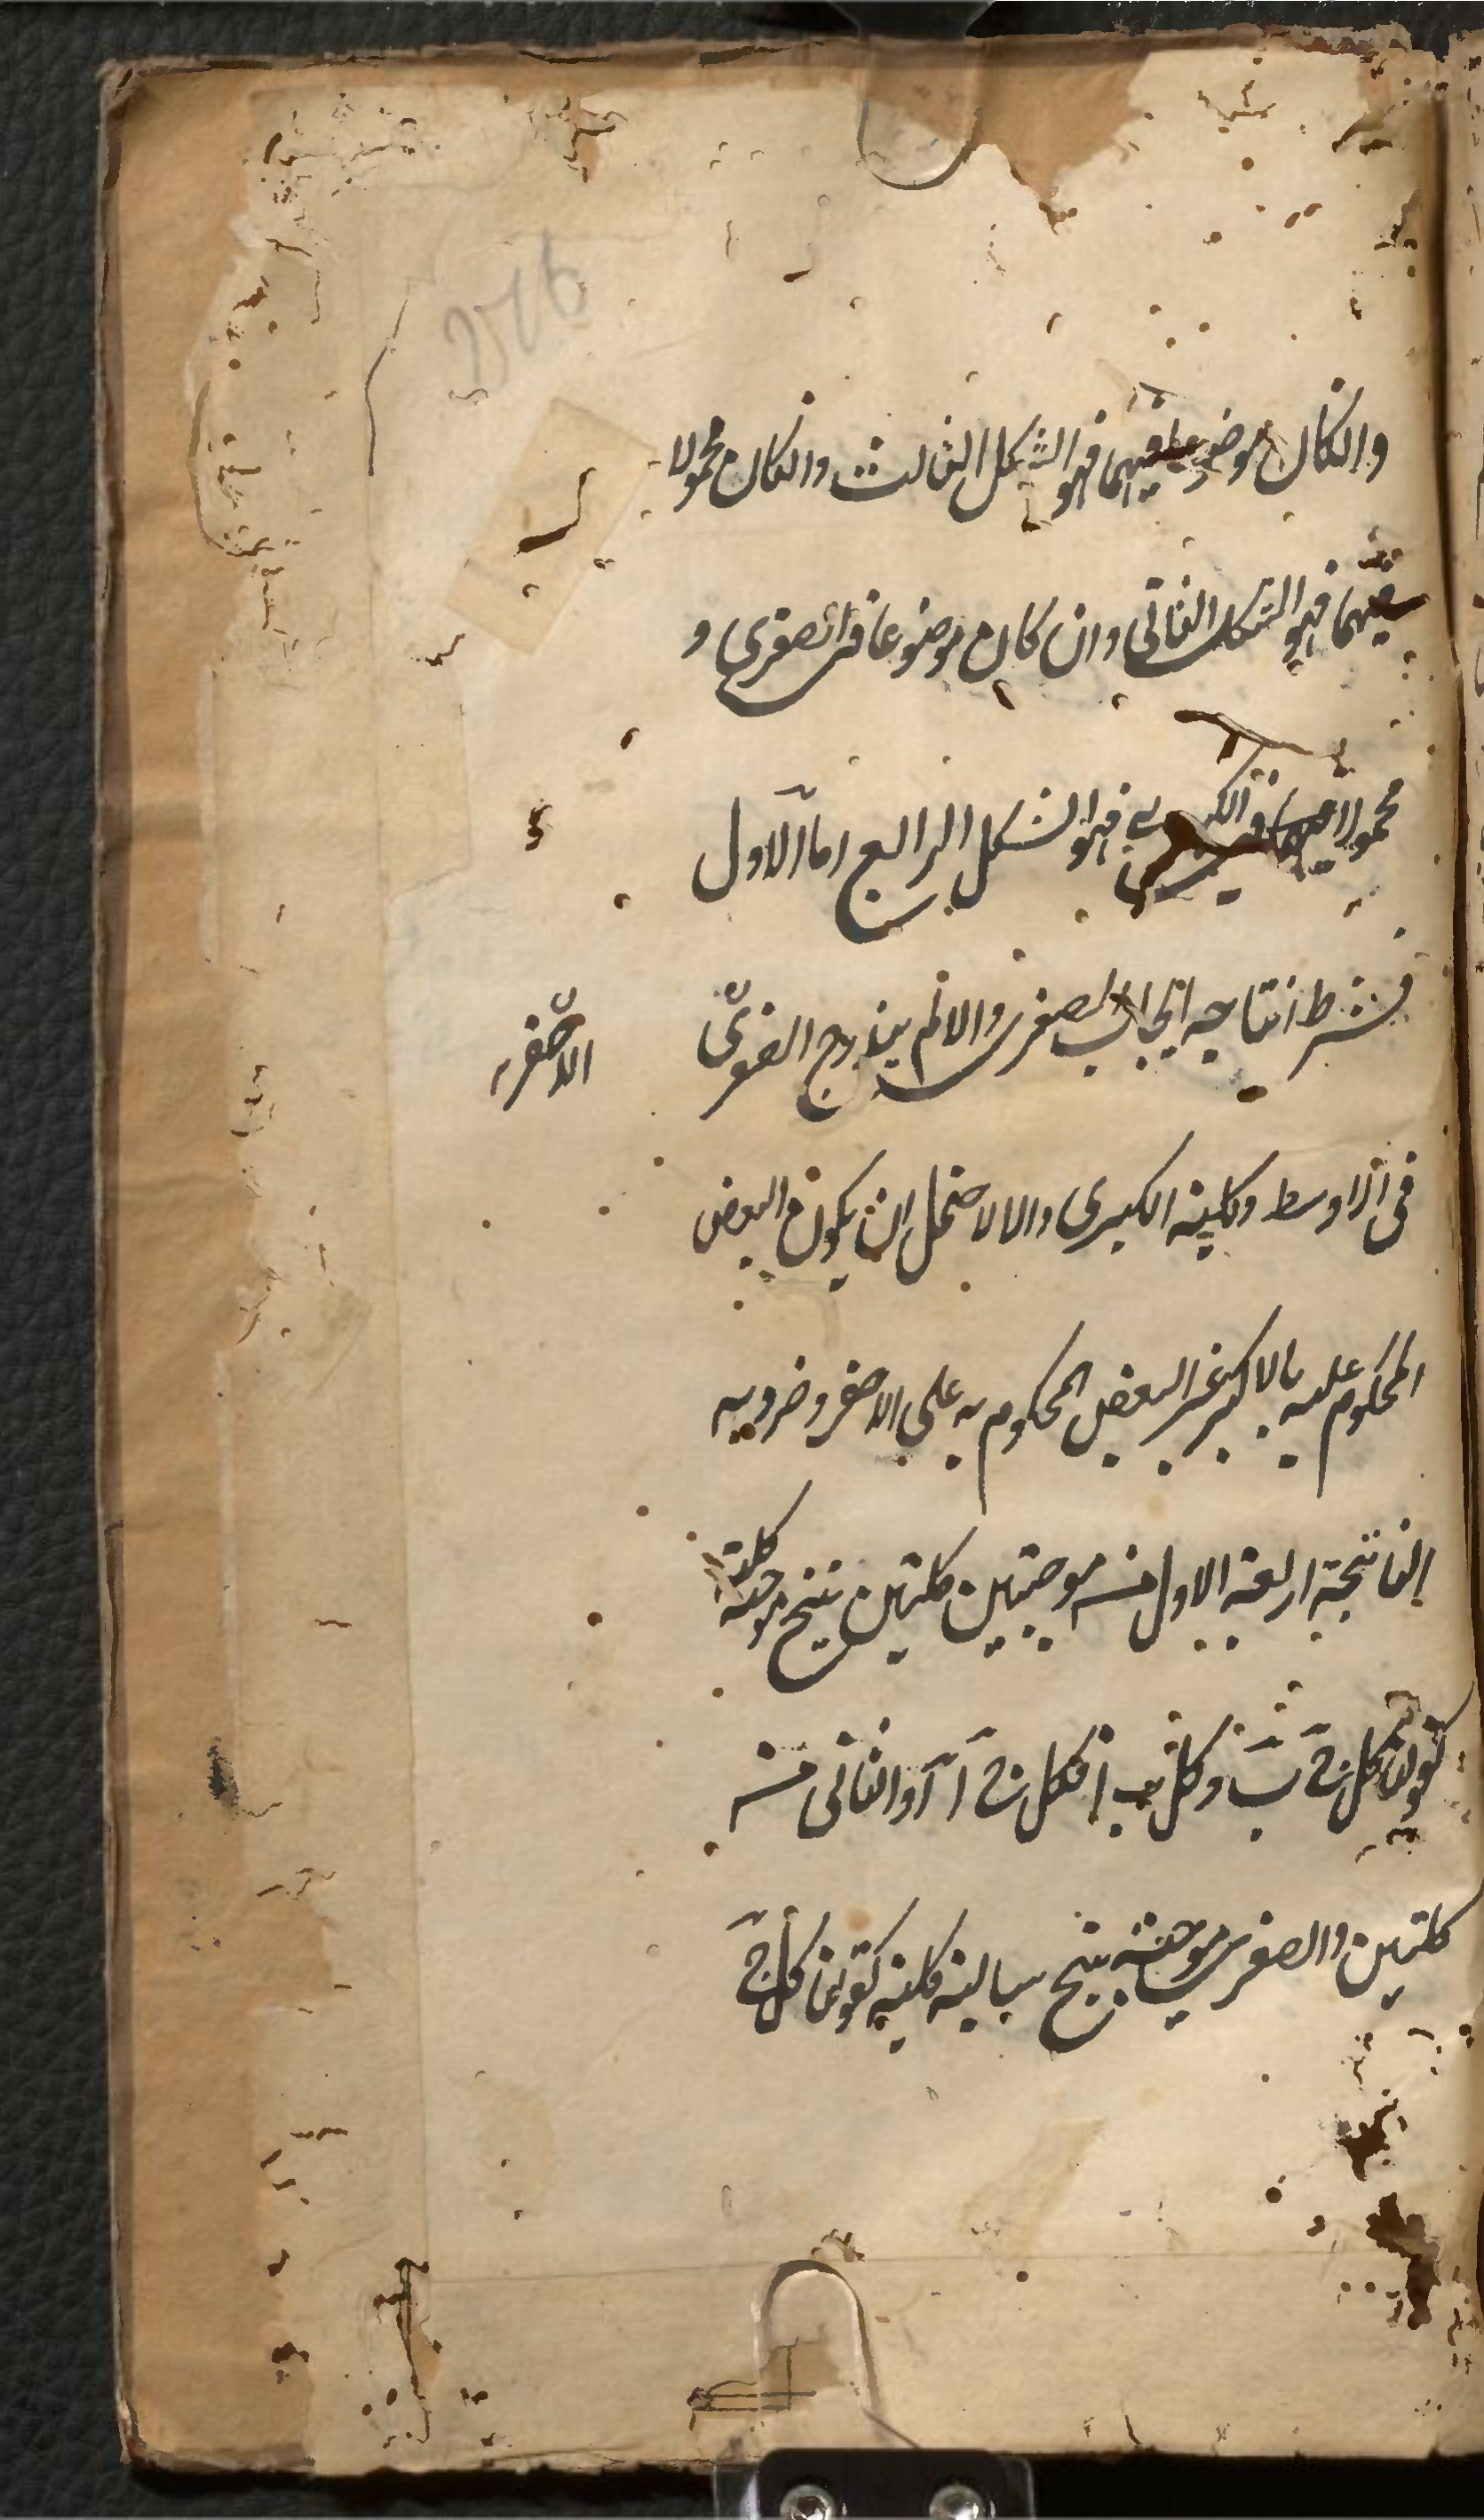 وان كان موضوعا فيهما فهو الشكل الثالث وان كان محمولا
فيهما فهو الشكل الثاني وان كان موضوعا في الصغرى و
محمولا في الكبرى فهو الشكل الرابع اما الاول
فشرط انتاجه ايجاب الصغرى والا لم يندرج
الاصغر
في الاوسط وكلية الكبرى والا لاحتمل ان يكون البعض
المحكوم عليه بالاكبر غير البعض المحكوم به على الاصغر وضروبه
الناتجة اربعة الاول من موجبتين كليتين ينتج موجبة كلية
كقولنا كل ج ب وكل ب ا فكل ج ا والثاني من
كليتين والصغرى موجبة ينتج سالبة كلية كقولنا كل ج